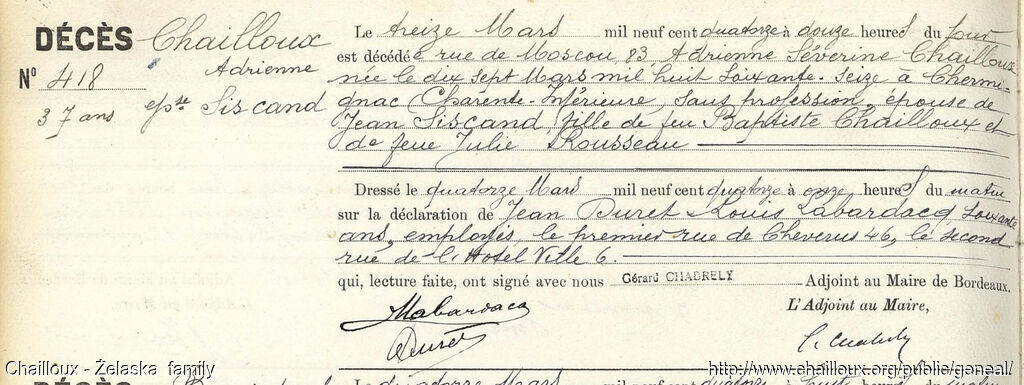 DÉCÈS
N° 418
37 ans
Chailloux
Adrienne
épse Siscand
Le treize Mars mil neuf cent quatorze à douze heures du jour
est décédée rue de Moscou, 83, Adrienne Séverine Chailloux
née le dix sept Mars mil huit soixante-seize à Chermi-
gnac Charente-Inférieure, sans profession, épouse de
Jean Siscand, fille de feu Baptiste Chailloux et
de feue Julie Rousseau
Dressé le quatorze Mars mil neuf cent quatorze à onze heures du matin
sur la déclaration de Jean Duret et Louis Labardacq, soixante
ans, employés, le premier rue de Cheverus 46, le second
rue de l'Hôtel Ville 6.
qui, lecture faite, ont signé avec nous Gérard CHABRELY Adjoint au Maire de Bordeaux.
L'Adjoint au Maire,
Labardacq
Duret
Chailloux - Żelaska family
http://www.chailloux.org/public/geneal/